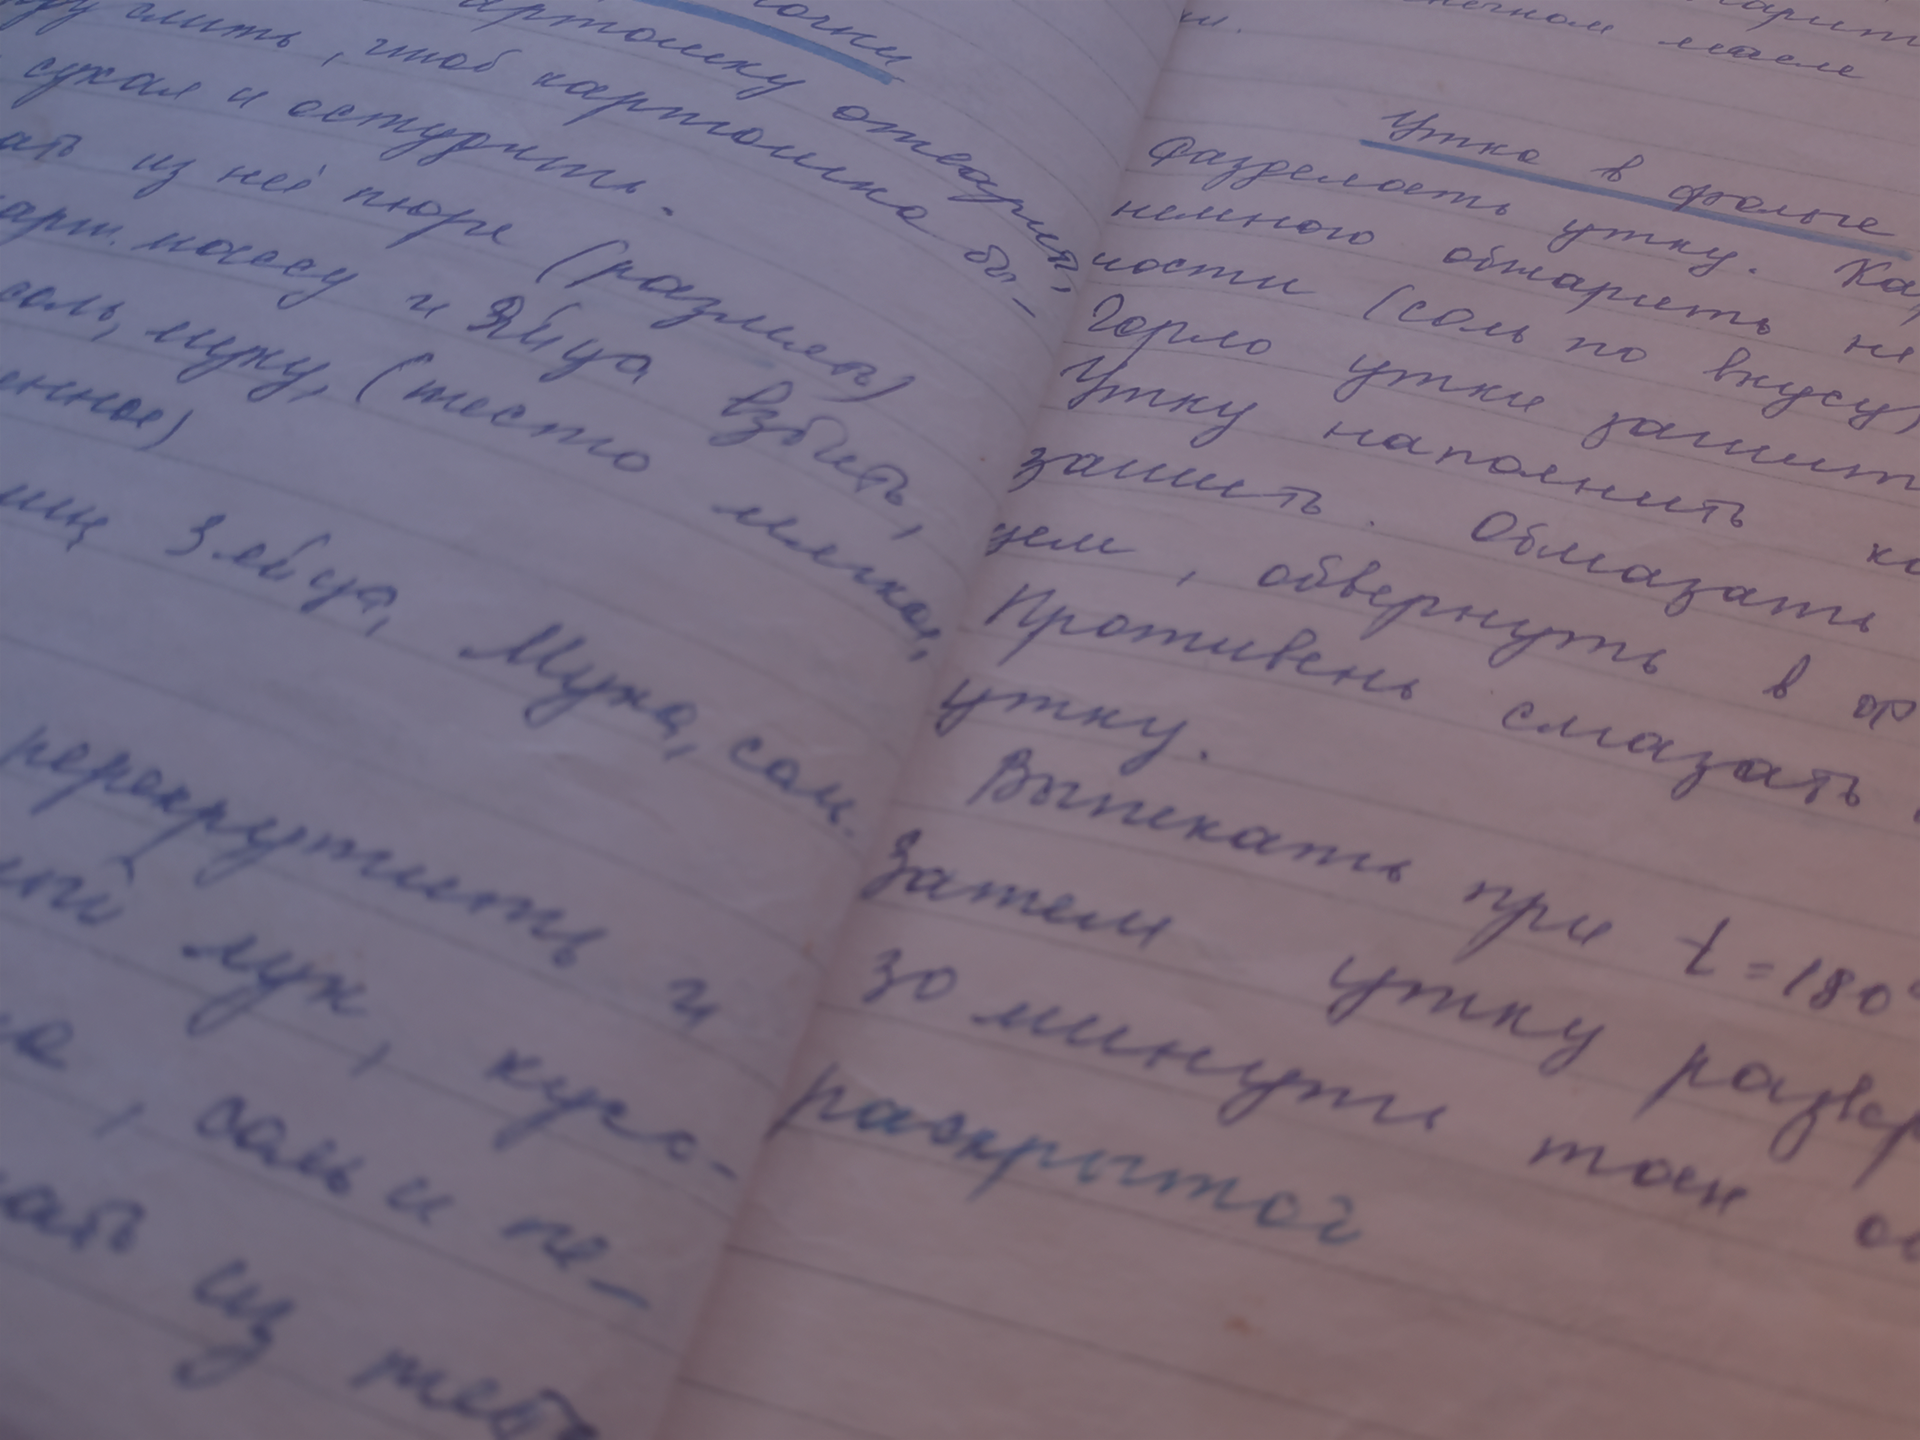 очки
артошку отварить,
слить, чтоб картошка бы-
сухая и остудить.
из неё пюре (размять)
карт. массу и Яйца взбить,
соль, муку, (тесто мягкое,
енное)
яиц 3 яйца, Мука, соль.
перекрутить и
лук, кусо-
, соль и пе-
из
масле
Утка в фольге
Разделать утку. Ка
немного обжарить не
ности (соль по вкусу)
Горло утки зашит
Утку наполнить ка
зашить. Обмазать
цем, обвернуть в ф
Противень смазать
утку.
Выпекать при t=180°
Затем утку развер
30 минут
раскрытой